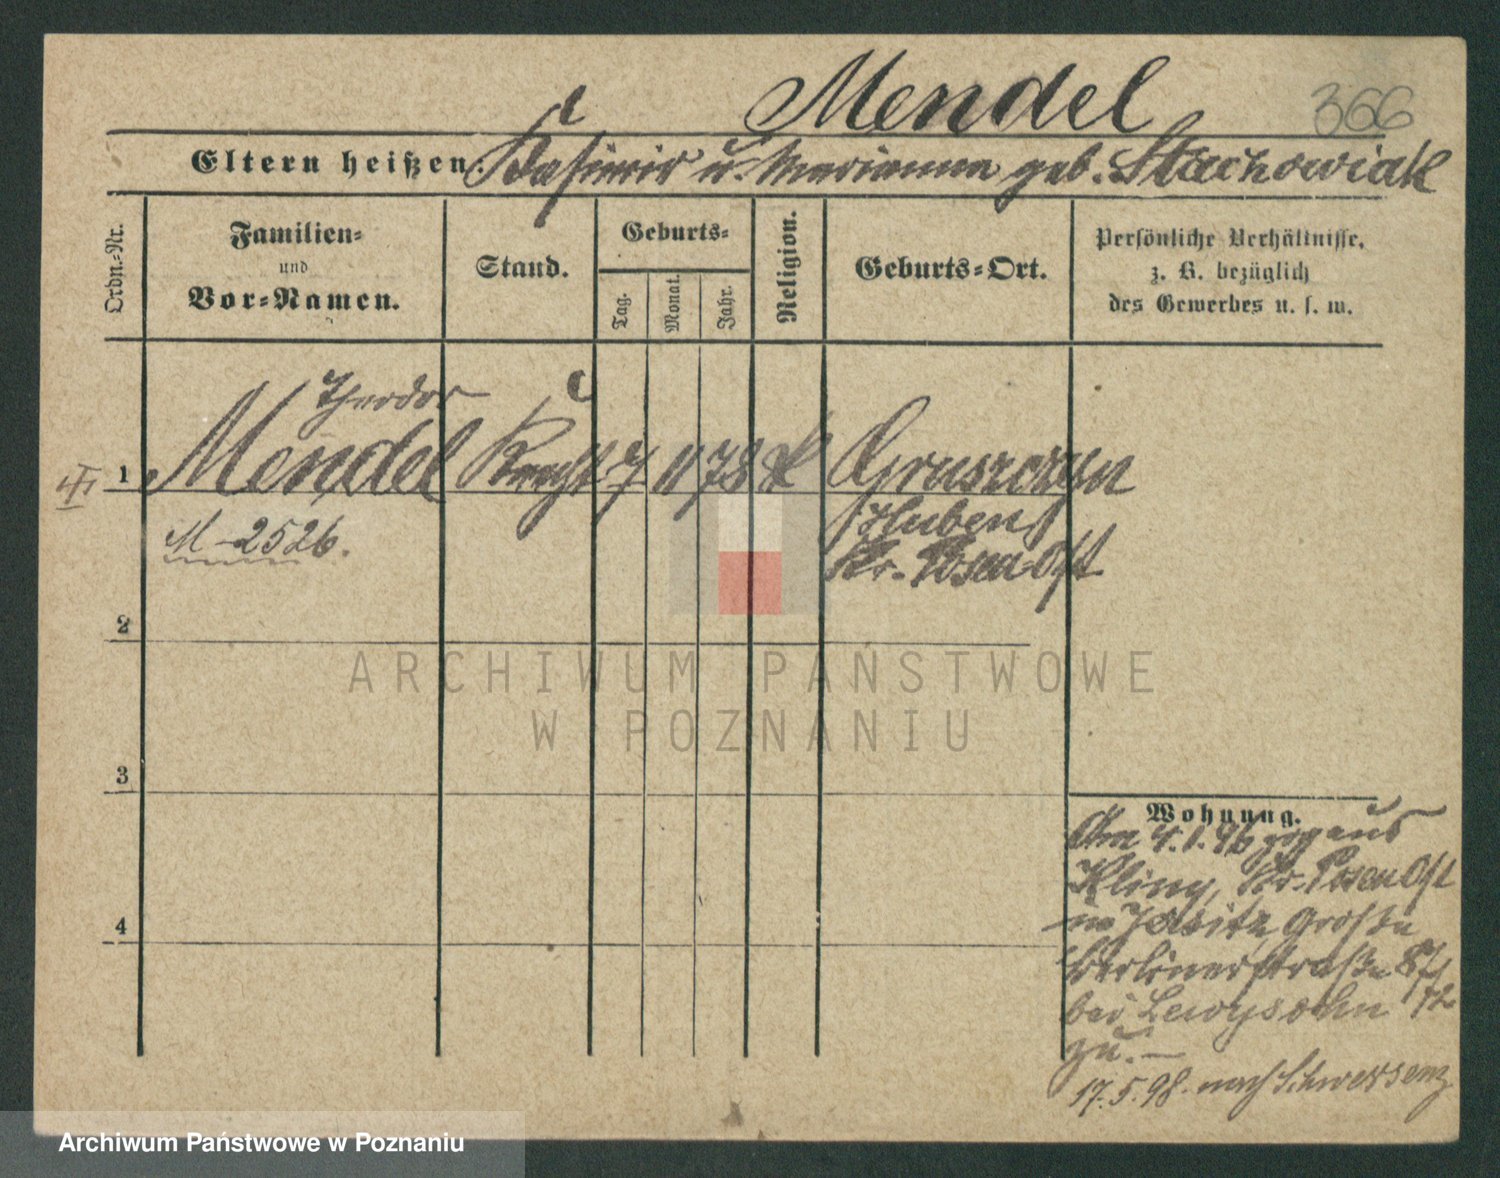 Mendel
366
Eltern heißen: Kasimir u. Marianna geb. Stachowiak
Ordn.-Nr.
Familien-
und
Vor-Namen.
Stand.
Geburts-
Tag.
Monat.
Jahr.
Religion.
Geburts-Ort.
Persönliche Verhältnisse,
z. B. bezüglich
des Gewerbes u. s. w.
Theodor
1 Mendel Knecht 7 11 78 k Gruszczyn
M-2526.
Huben
Kr. Posen Ost
2
3
4
Wohnung.
Am 4.1.96 zog aus
Kling, Kr. Posen Ost
in Jersitz Große
Berlinerstraße
bei Lewysohn
zu.—
17.5.98. nach Schwersenz
ARCHIWUM PAŃSTWOWE
W POZNANIU
Archiwum Państwowe w Poznaniu